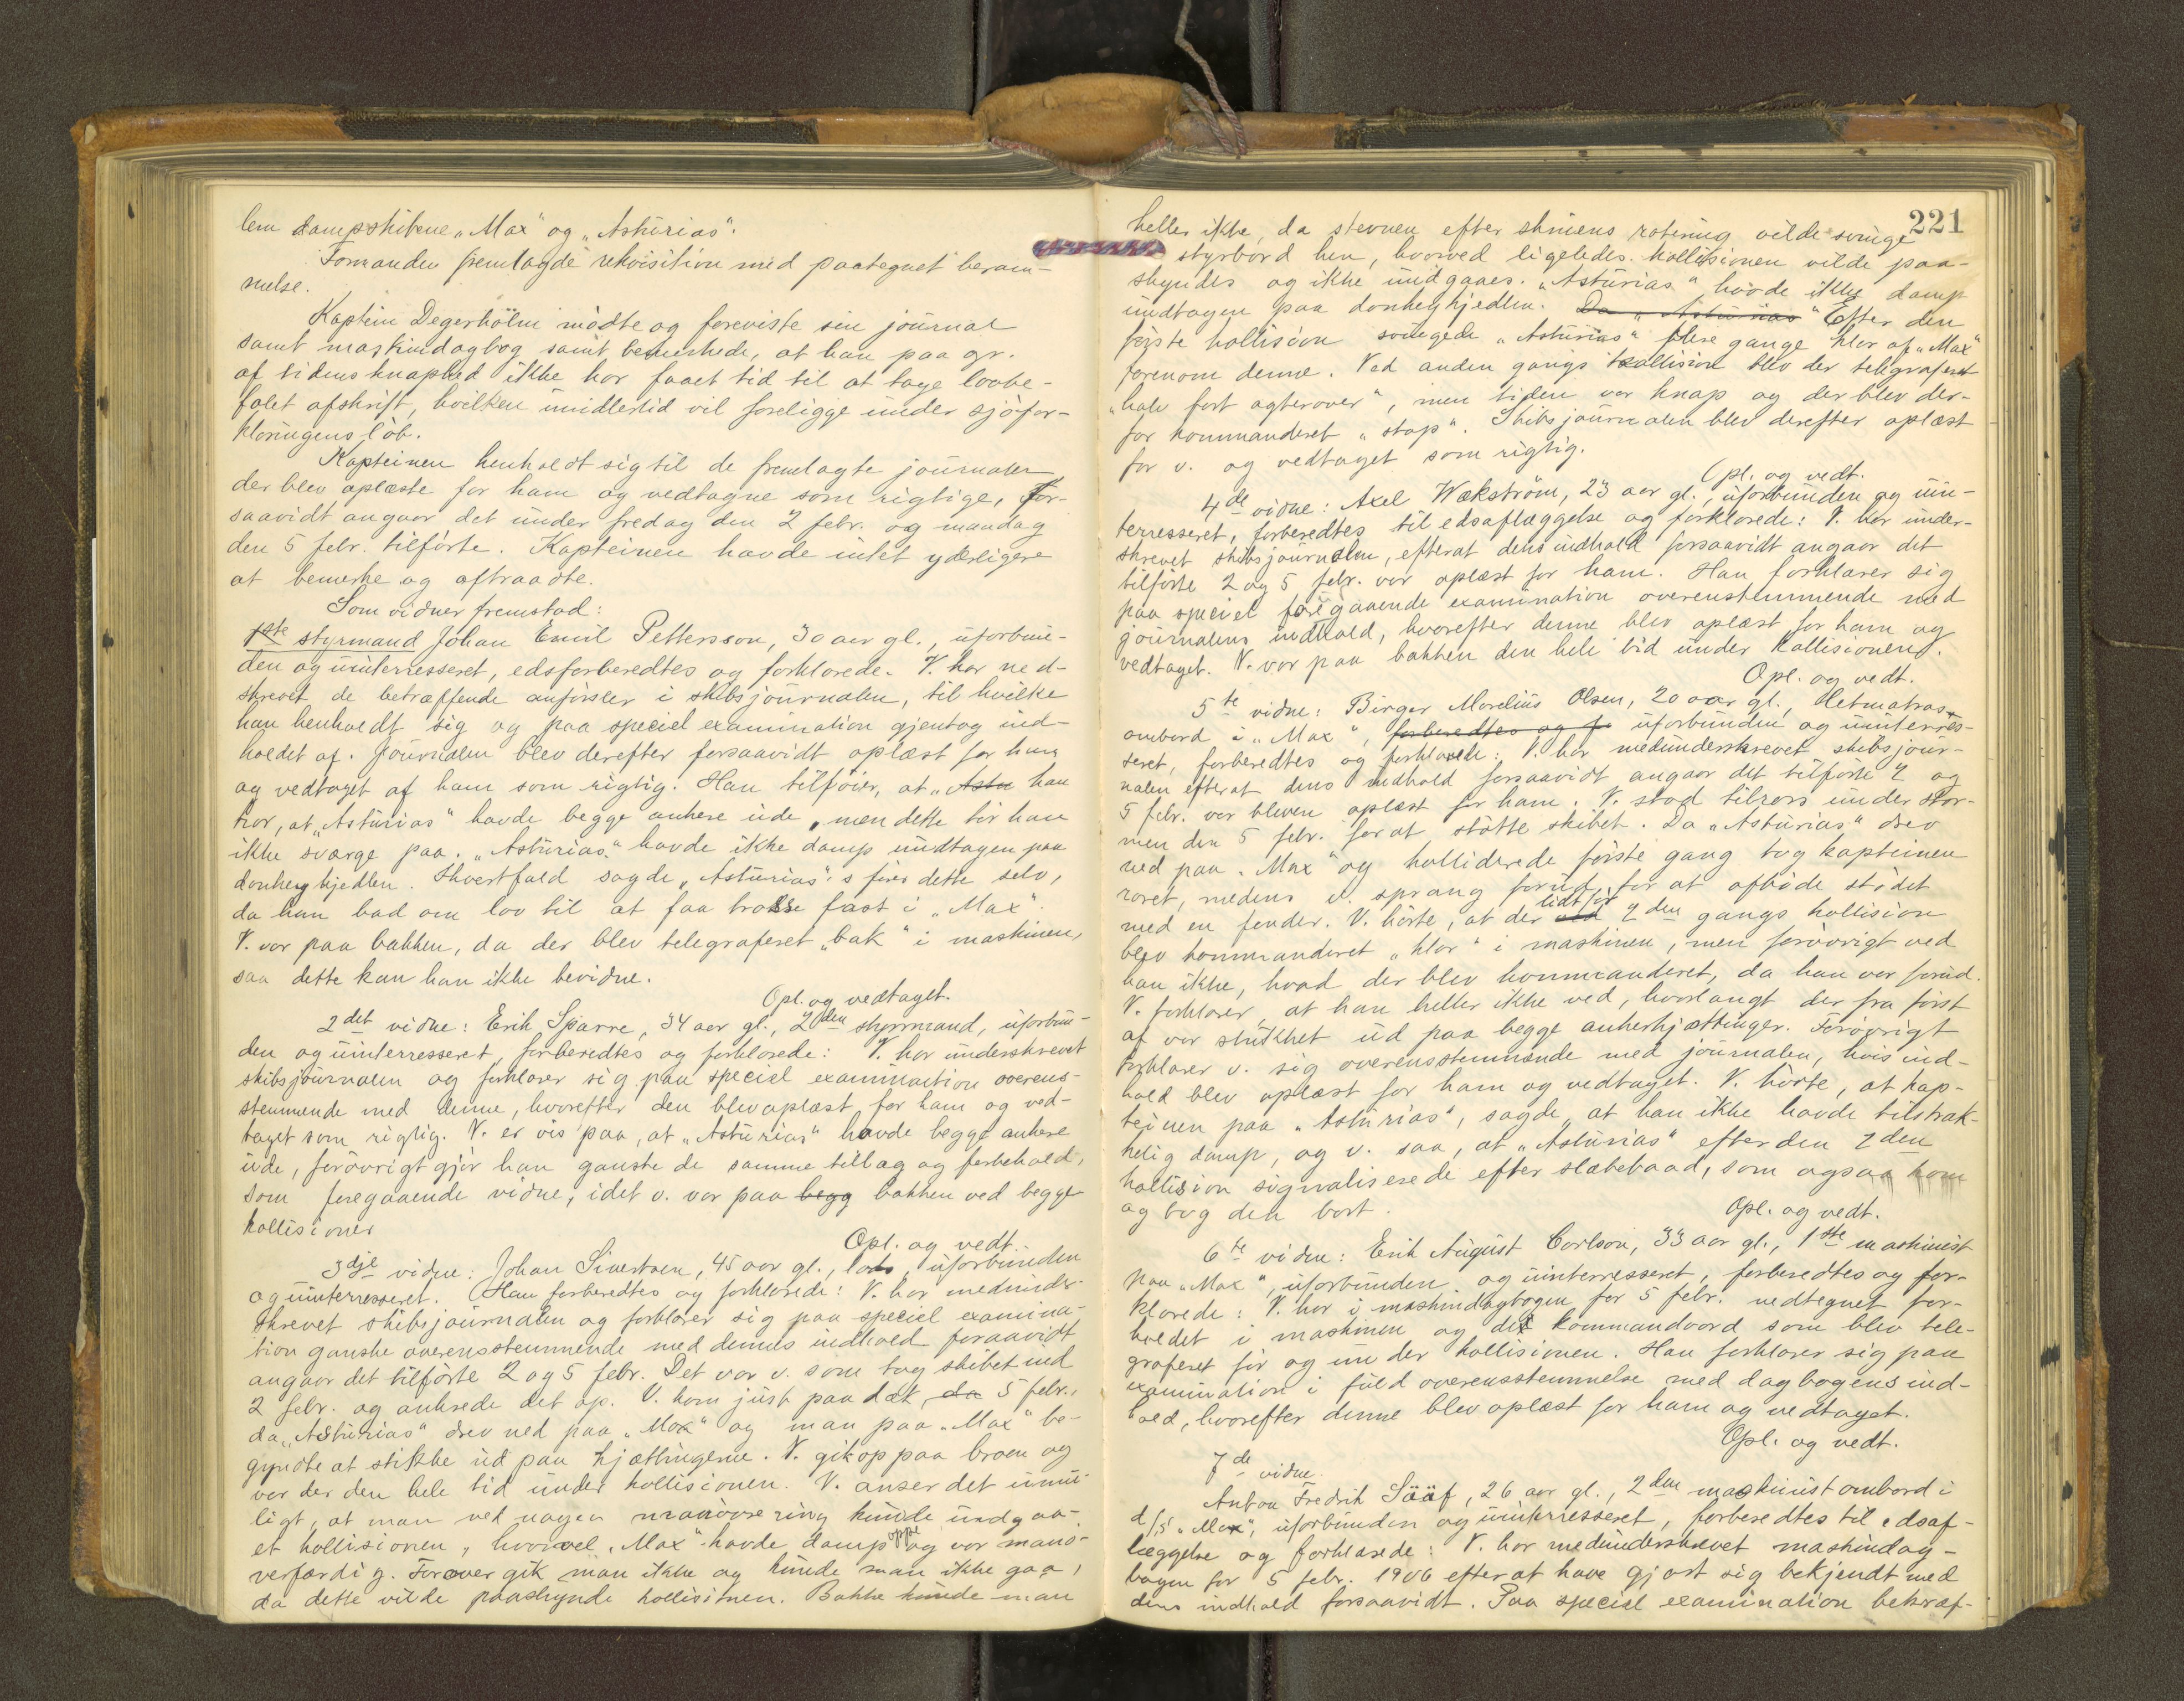 lem dampskibene „Max“ og „Asturias“.
Formanden fremlagde rekvisition med paategnet beram-
melse.
Kaptein Degerhölm mödte og foreviste sin journal
samt maskindagbog samt bemerkede, at han paa gr.
af tidens knaphed ikke har faaet tid til at tage lovbe-
falet afskrift, hvilken imidlertid vil foreligge under sjöfor-
klaringens löb.
Kapteinen henholdt sig til de fremlagte journaler
der blev oplæste for ham og vedtagne som rigtige, for-
saavidt angaar det under fredag den 2 febr. og mandag
den 5 febr. tilförte. Kapteinen havde intet yderligere
at bemerke og aftraadte.
Som vidner fremstod:
1ste styrmand Johan Emil Pettersson, 30 aar gl., uforbun-
den og uinterresseret, edsforberedtes og forklarede. V. har ned-
skrevet de betræffende anförsler i skibsjournalen, til hvilke
han henholdt sig og paa speciel examination gjentog ind-
holdet af. Journalen blev derefter forsaavidt oplæst for ham
og vedtaget af ham som rigtig. Han tilföier, at „Astu han
tror, at „Asturias“ havde begge ankere ude, men dette tör han
ikke sværge paa. „Asturias“ havde ikke damp undtagen paa
donkeykjedlen. Ihvertfald sagde „Asturias“'s förer dette selv,
da han bad om lov til at faa trosse fast i „Max“.
V. var paa bakken, da der blev telegraferet „bak“ i maskinen,
saa dette kan han ikke bevidne.
Opl. og vedtaget.
2det vidne: Erik Sparre, 34 aar gl., 2den styrmand, uforbun-
den og uinterresseret, forberedtes og forklarede: V. har underskrevet
skibsjournalen og forklarer sig paa speciel examination overens-
stemmende med denne, hvorefter den blev oplæst for ham og ved-
taget som rigtig. V. er vis paa, at „Asturias“ havde begge ankere
ude, forövrigt gjör han ganske de samme tillæg og forbehold,
som foregaaende vidne, idet v. var paa begg bakken ved begge
kollisioner
Opl. og vedt.
3dje vidne: Johan Sivertsen, 45 aar gl., lods, uforbunden
og uinterresseret. Han forberedtes og forklarede: V. har medunder-
skrevet skibsjournalen og forklarer sig paa speciel examina-
tion ganske overensstemmende med dennes indhold forsaavidt
angaar det tilförte 2 og 5 febr. Det var v. som tog skibet ind
2 febr. og ankrede det op. V. kom just paa dæk, da 5 febr.,
da „Asturias“ drev ned paa „Max“ og man paa „Max“ be-
gyndte at stikke ud paa kjættingerne. V. gik op paa broen og
var der den hele tid under kollisionen. V. anser det umu-
ligt, at man ved nogen manövrering kunde undgaa-
et kollisionen, hvorvel „Max“ havde damp oppe og var manö-
verfærdig. Forover gik man ikke og kunde man ikke gaa,
da dette vilde paaskynde kollisionen. Bakke kunde man
221
heller ikke, da stevnen efter skruens rotering vilde svinge
styrbord hen, hvorved ligeledes kollisionen vilde paa-
skyndes og ikke undgaaes. „Asturias“ havde ikke damp
undtagen paa donkeykjedlen. Da „Asturias“ Efter den
förste kollision svingede „Asturias“ flere gange klar af „Max“
forenom denne. Ved anden gangs kollision blev der telegraferet
„halv fart agterover“, men tiden var knap og der blev der-
for kommanderet „stop“. Skibsjournalen blev derefter oplæst
for v. og vedtaget som rigtig.
Opl. og vedt.
4de vidne: Axel Wækström, 23 aar gl., uforbunden og uin-
terresseret, forberedtes til edsaflæggelse og forklarede: V. har under-
skrevet skibsjournalen, efterat dens indhold forsaavidt angaar det
tilförte 2 og 5 febr. var oplæst for ham. Han forklarer sig
paa speciel foregaaende examination overenstemmende med
journalens indhold, hvorefter denne blev oplæst for ham og
vedtaget. V. var paa bakken den hele tid under kollisionen.
Opl. og vedt.
5te vidne: Birger Mordius Olsen, 20 aar gl., letmatros
ombord i „Max“, forberedtes og f uforbunden og uinterres-
seret, forberedtes og forklarede: V. har medunderskrevet skibsjour-
nalen efterat dens indhold forsaavidt angaar det tilförte 2 og
5 febr. var bleven oplæst for ham. V. stod tilrors under stor-
men den 5 febr. for at stötte skibet. Da „Asturias“ drev
ned paa „Max“ og kolliderede förste gang tog kapteinen
roret, medens v. sprang forud, for at aftböde stödet
med en fender. V. hörte, at der ved lidt för 2den gangs kollision
blev kommanderet „klar“ i maskinen, men forövrigt ved
han ikke, hvad der blev kommanderet, da han var forud.
V. forklarer, at han heller ikke ved, hvorlangt der fra först
af var stukket ud paa begge ankerkjættinger. Forövrigt
forklarer v. sig overensstemmende med journalen, hvis ind-
hold blev oplæst for ham og vedtaget. V. hörte, at kap-
teinen paa „Asturias“, sagde, at han ikke havde tilstræk-
kelig damp, og v. saa, at „Asturias“ efter den 2den
kollision signaliserede efter slæbebaad, som ogsaa kom
og tog den bort.
Opl. og vedt.
6te vidne: Erik August Carlson, 33 aar gl., 1ste maskinist
paa „Max“, uforbunden og uinterresseret, forberedtes og for-
klarede: V. har i maskindagbogen for 5 febr. nedtegnet for-
holdet i maskinen og de kommandoord som blev tele-
graferet för og under kollisionen. Han forklarer sig paa
examination i fuld overensstemmelse med dagbogens ind-
hold, hvorefter denne blev oplæst for ham og vedtaget.
Opl. og vedt.
7de vidne.
Anton Fredrik Sääf, 26 aar gl., 2den maskinist ombord i
d/s „Max“, uforbunden og uinterresseret, forberedtes til edsaf-
læggelse og forklarede: V. har medunderskrevet maskindag-
bogen for 5 febr. 1906 efterat have gjort sig bekjendt med
dens indhold forsaavidt. Paa speciel examination bekræf-